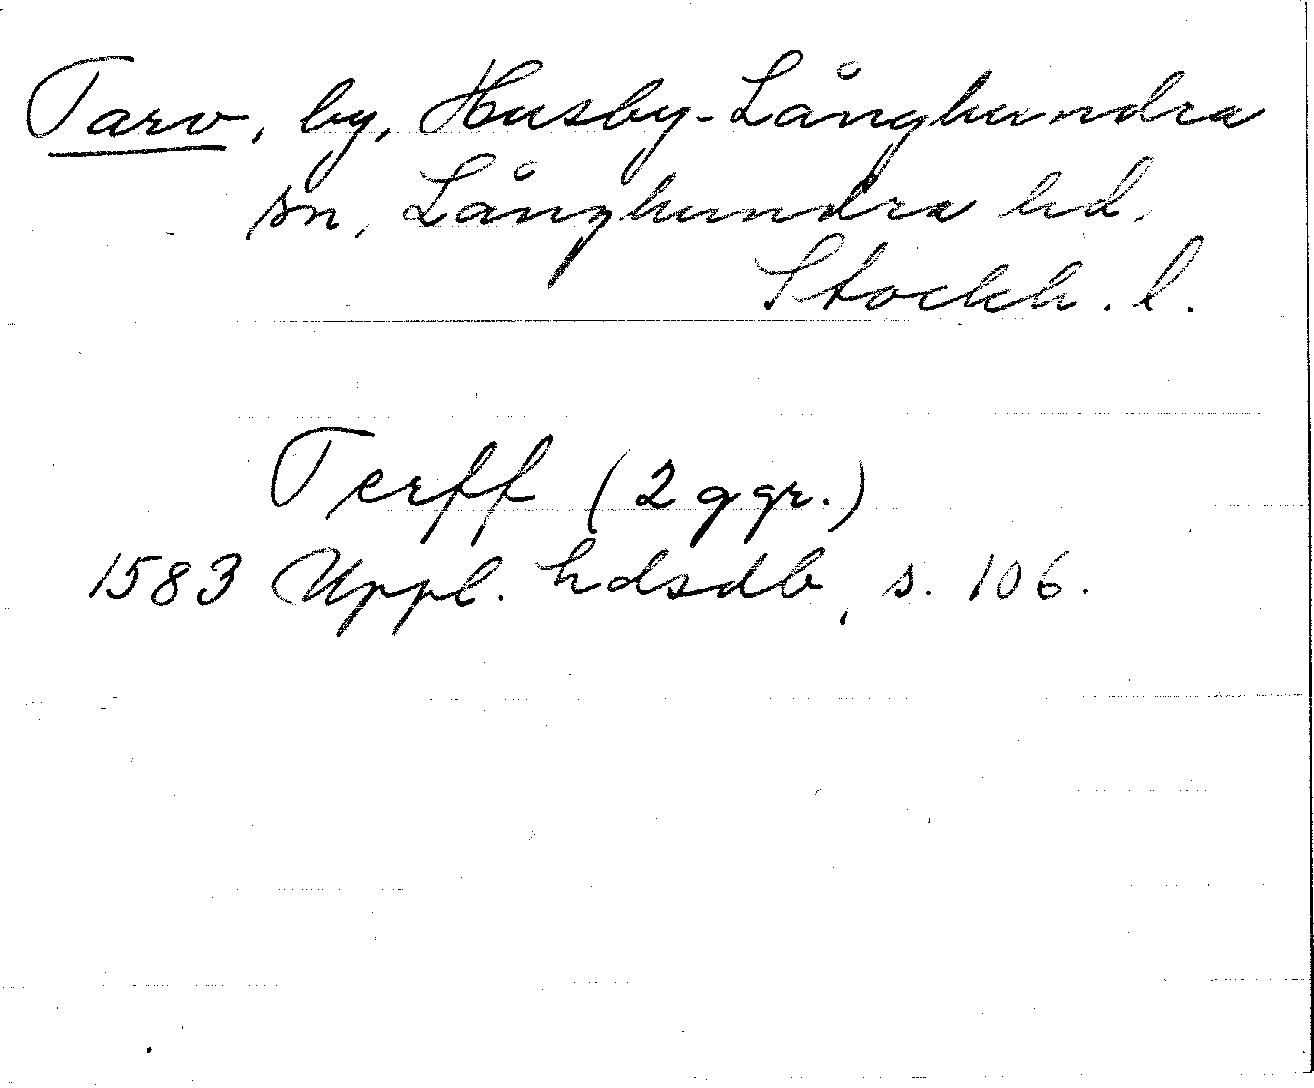 Tarv, by, Husby-Långhundra
sn, Långhundra hd.
Stockh. l.
Terff (2 ggr.)
1583 Uppl. hdsdb, s. 106.